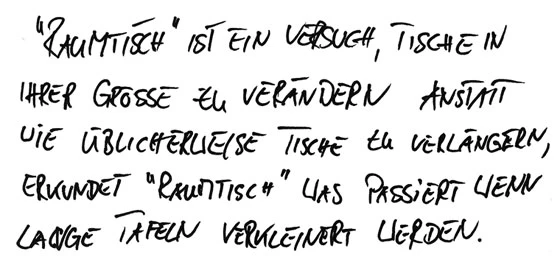 "RAUMTISCH" IST EIN VERSUCH, TISCHE IN
IHRER GRÖSSE ZU VERÄNDERN ANSTATT
WIE ÜBLICHERWEISE TISCHE ZU VERLÄNGERN,
ERKUNDET "RAUMTISCH" WAS PASSIERT WENN
LANGE TAFELN VERKLEINERT WERDEN.